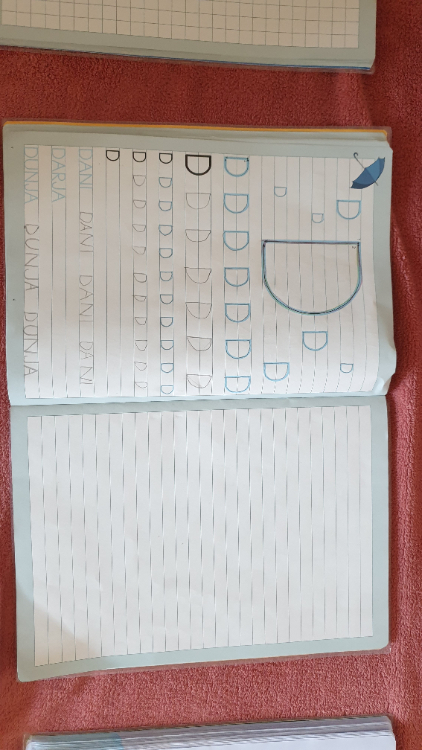 D D
D D
D D D
D D D D D D D
D D D D D D D
D D D D D D D D D D D
D D D D D D D D D D D
D
DANI DANI DANI DANI
DARJA
DUNJA DUNJA DUNJA